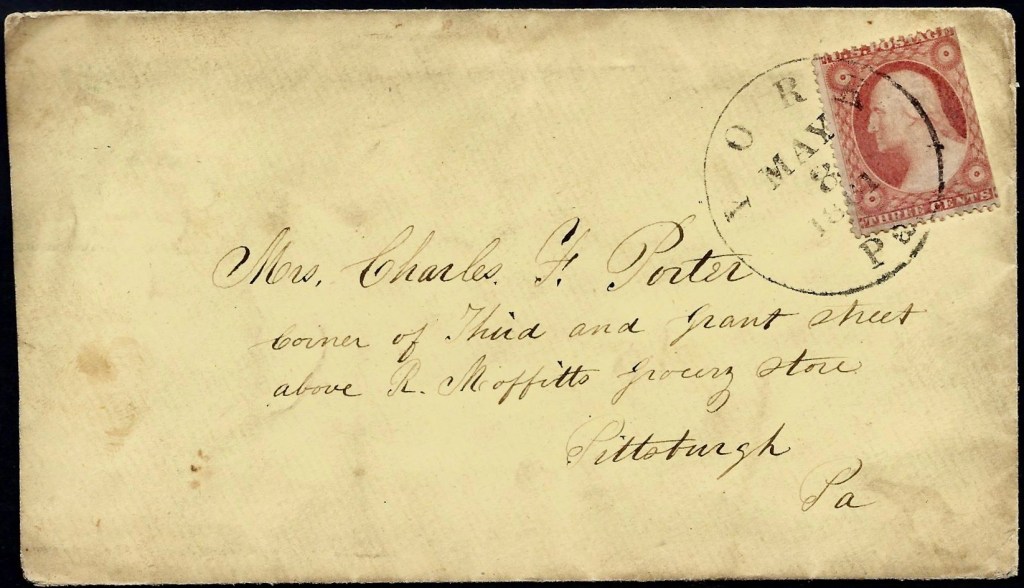 U.S. POSTAGE
THREE CENTS
YORK
MAY
8
Pa
Mrs. Charles. F. Porter
corner of Third and Grant street
above R. Moffitts Grocery store
Pittsburgh
Pa